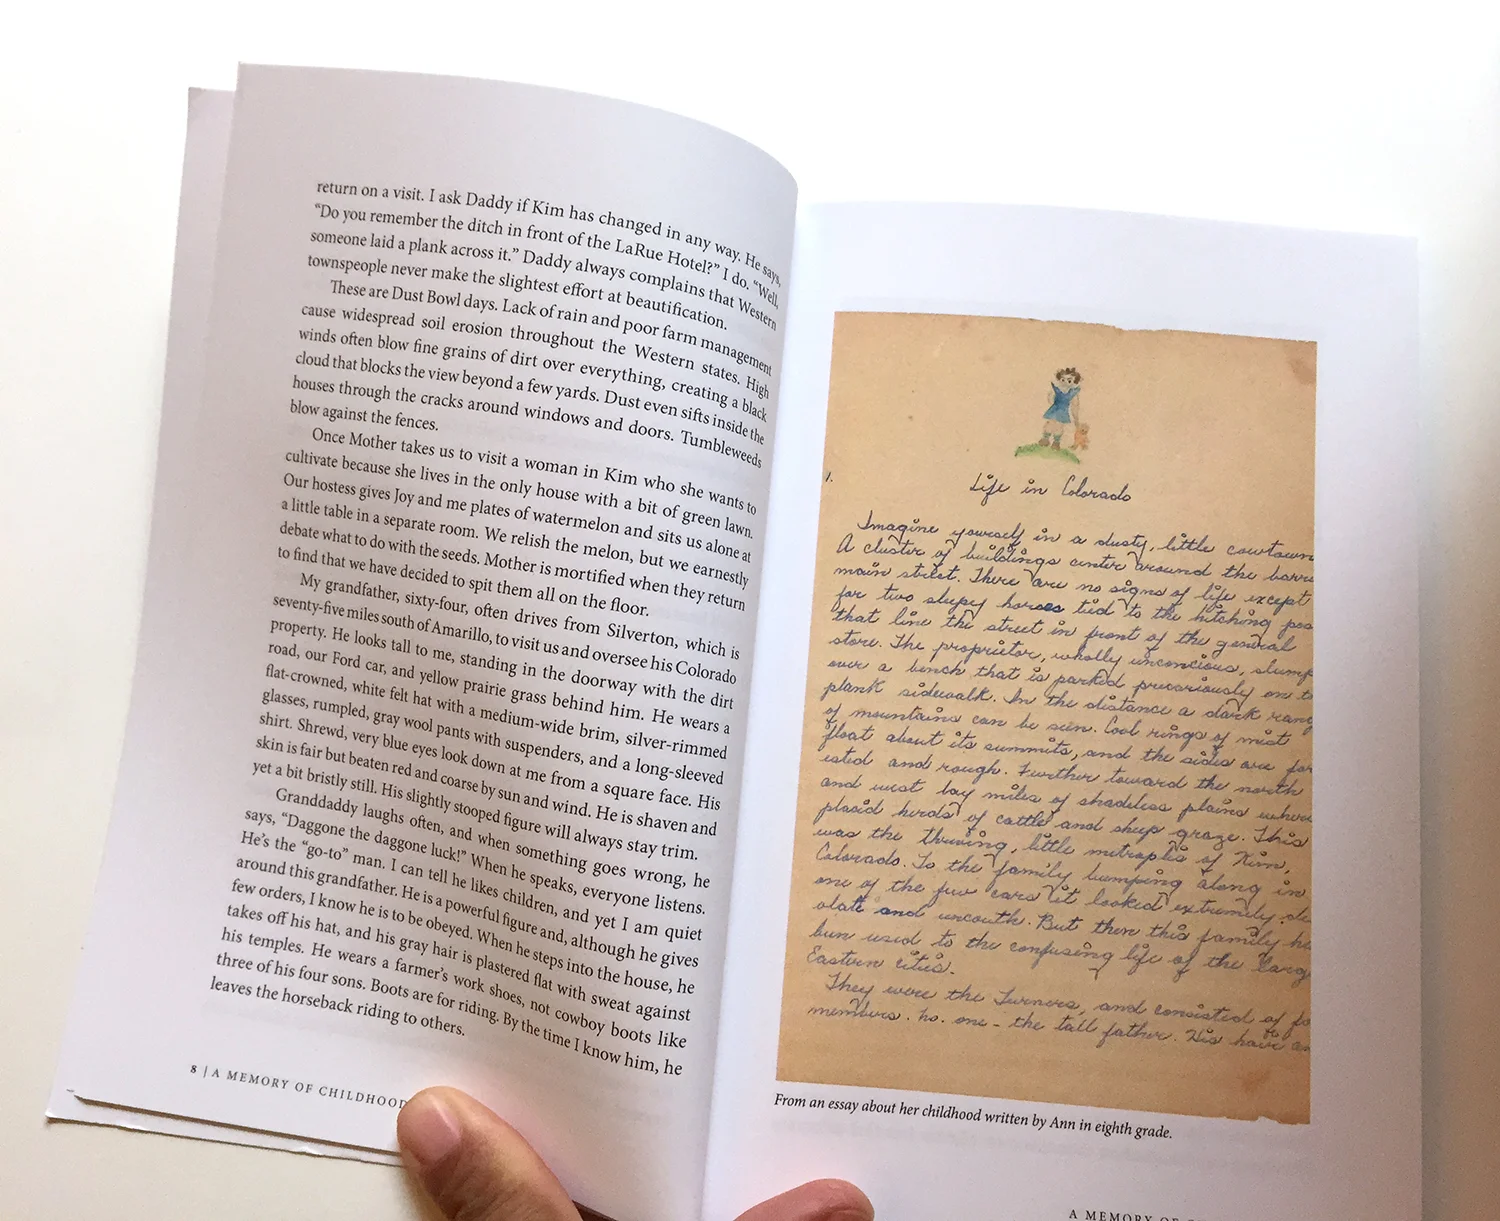 return on a visit. I ask Daddy if Kim has changed in any way. He says,
“Do you remember the ditch in front of the LaRue Hotel?” I do. “Well,
someone laid a plank across it.” Daddy always complains that Western
townspeople never make the slightest effort at beautification.
These are Dust Bowl days. Lack of rain and poor farm management
cause widespread soil erosion throughout the Western states. High
winds often blow fine grains of dirt over everything, creating a black
cloud that blocks the view beyond a few yards. Dust even sifts inside the
houses through the cracks around windows and doors. Tumbleweeds
blow against the fences.
Once Mother takes us to visit a woman in Kim who she wants to
cultivate because she lives in the only house with a bit of green lawn.
Our hostess gives Joy and me plates of watermelon and sits us alone at
a little table in a separate room. We relish the melon, but we earnestly
debate what to do with the seeds. Mother is mortified when they return
to find that we have decided to spit them all on the floor.
My grandfather, sixty-four, often drives from Silverton, which is
seventy-five miles south of Amarillo, to visit us and oversee his Colorado
property. He looks tall to me, standing in the doorway with the dirt
road, our Ford car, and yellow prairie grass behind him. He wears a
flat-crowned, white felt hat with a medium-wide brim, silver-rimmed
glasses, rumpled, gray wool pants with suspenders, and a long-sleeved
shirt. Shrewd, very blue eyes look down at me from a square face. His
skin is fair but beaten red and coarse by sun and wind. He is shaven and
yet a bit bristly still. His slightly stooped figure will always stay trim.
Granddaddy laughs often, and when something goes wrong, he
says, “Daggone the daggone luck!” When he speaks, everyone listens.
He’s the “go-to” man. I can tell he likes children, and yet I am quiet
around this grandfather. He is a powerful figure and, although he gives
few orders, I know he is to be obeyed. When he steps into the house, he
takes off his hat, and his gray hair is plastered flat with sweat against
his temples. He wears a farmer’s work shoes, not cowboy boots like
three of his four sons. Boots are for riding. By the time I know him, he
leaves the horseback riding to others.
8 | A MEMORY OF CHILDHOOD
1.
Life in Colorado
Imagine yourself in a dusty, little cowtown
A cluster of buildings center around the
main street. There are no signs of life except
for two sleepy horses tied to the hitching
that line the street in front of the general
store. The proprietor, wholly unconcious,
over a bench that is parked precariously on
plank sidewalk. In the distance a dark
of mountains can be seen. Cool rings of mist
float about its summits, and the sides are for
ested and rough. Further toward the north
and west lay miles of shadeless plains where
placid herds of cattle and sheep graze. This
was the thriving, little metroplis of Kim,
Colorado. To the family bumping along in
one of the few cars it looked extremely de
olate and uncouth. But then this family
been used to the confusing life of the
Eastern cities.
They were the Turners, and consisted of
members. no. one - the tall father. His hair
From an essay about her childhood written by Ann in eighth grade.
A MEMORY OF